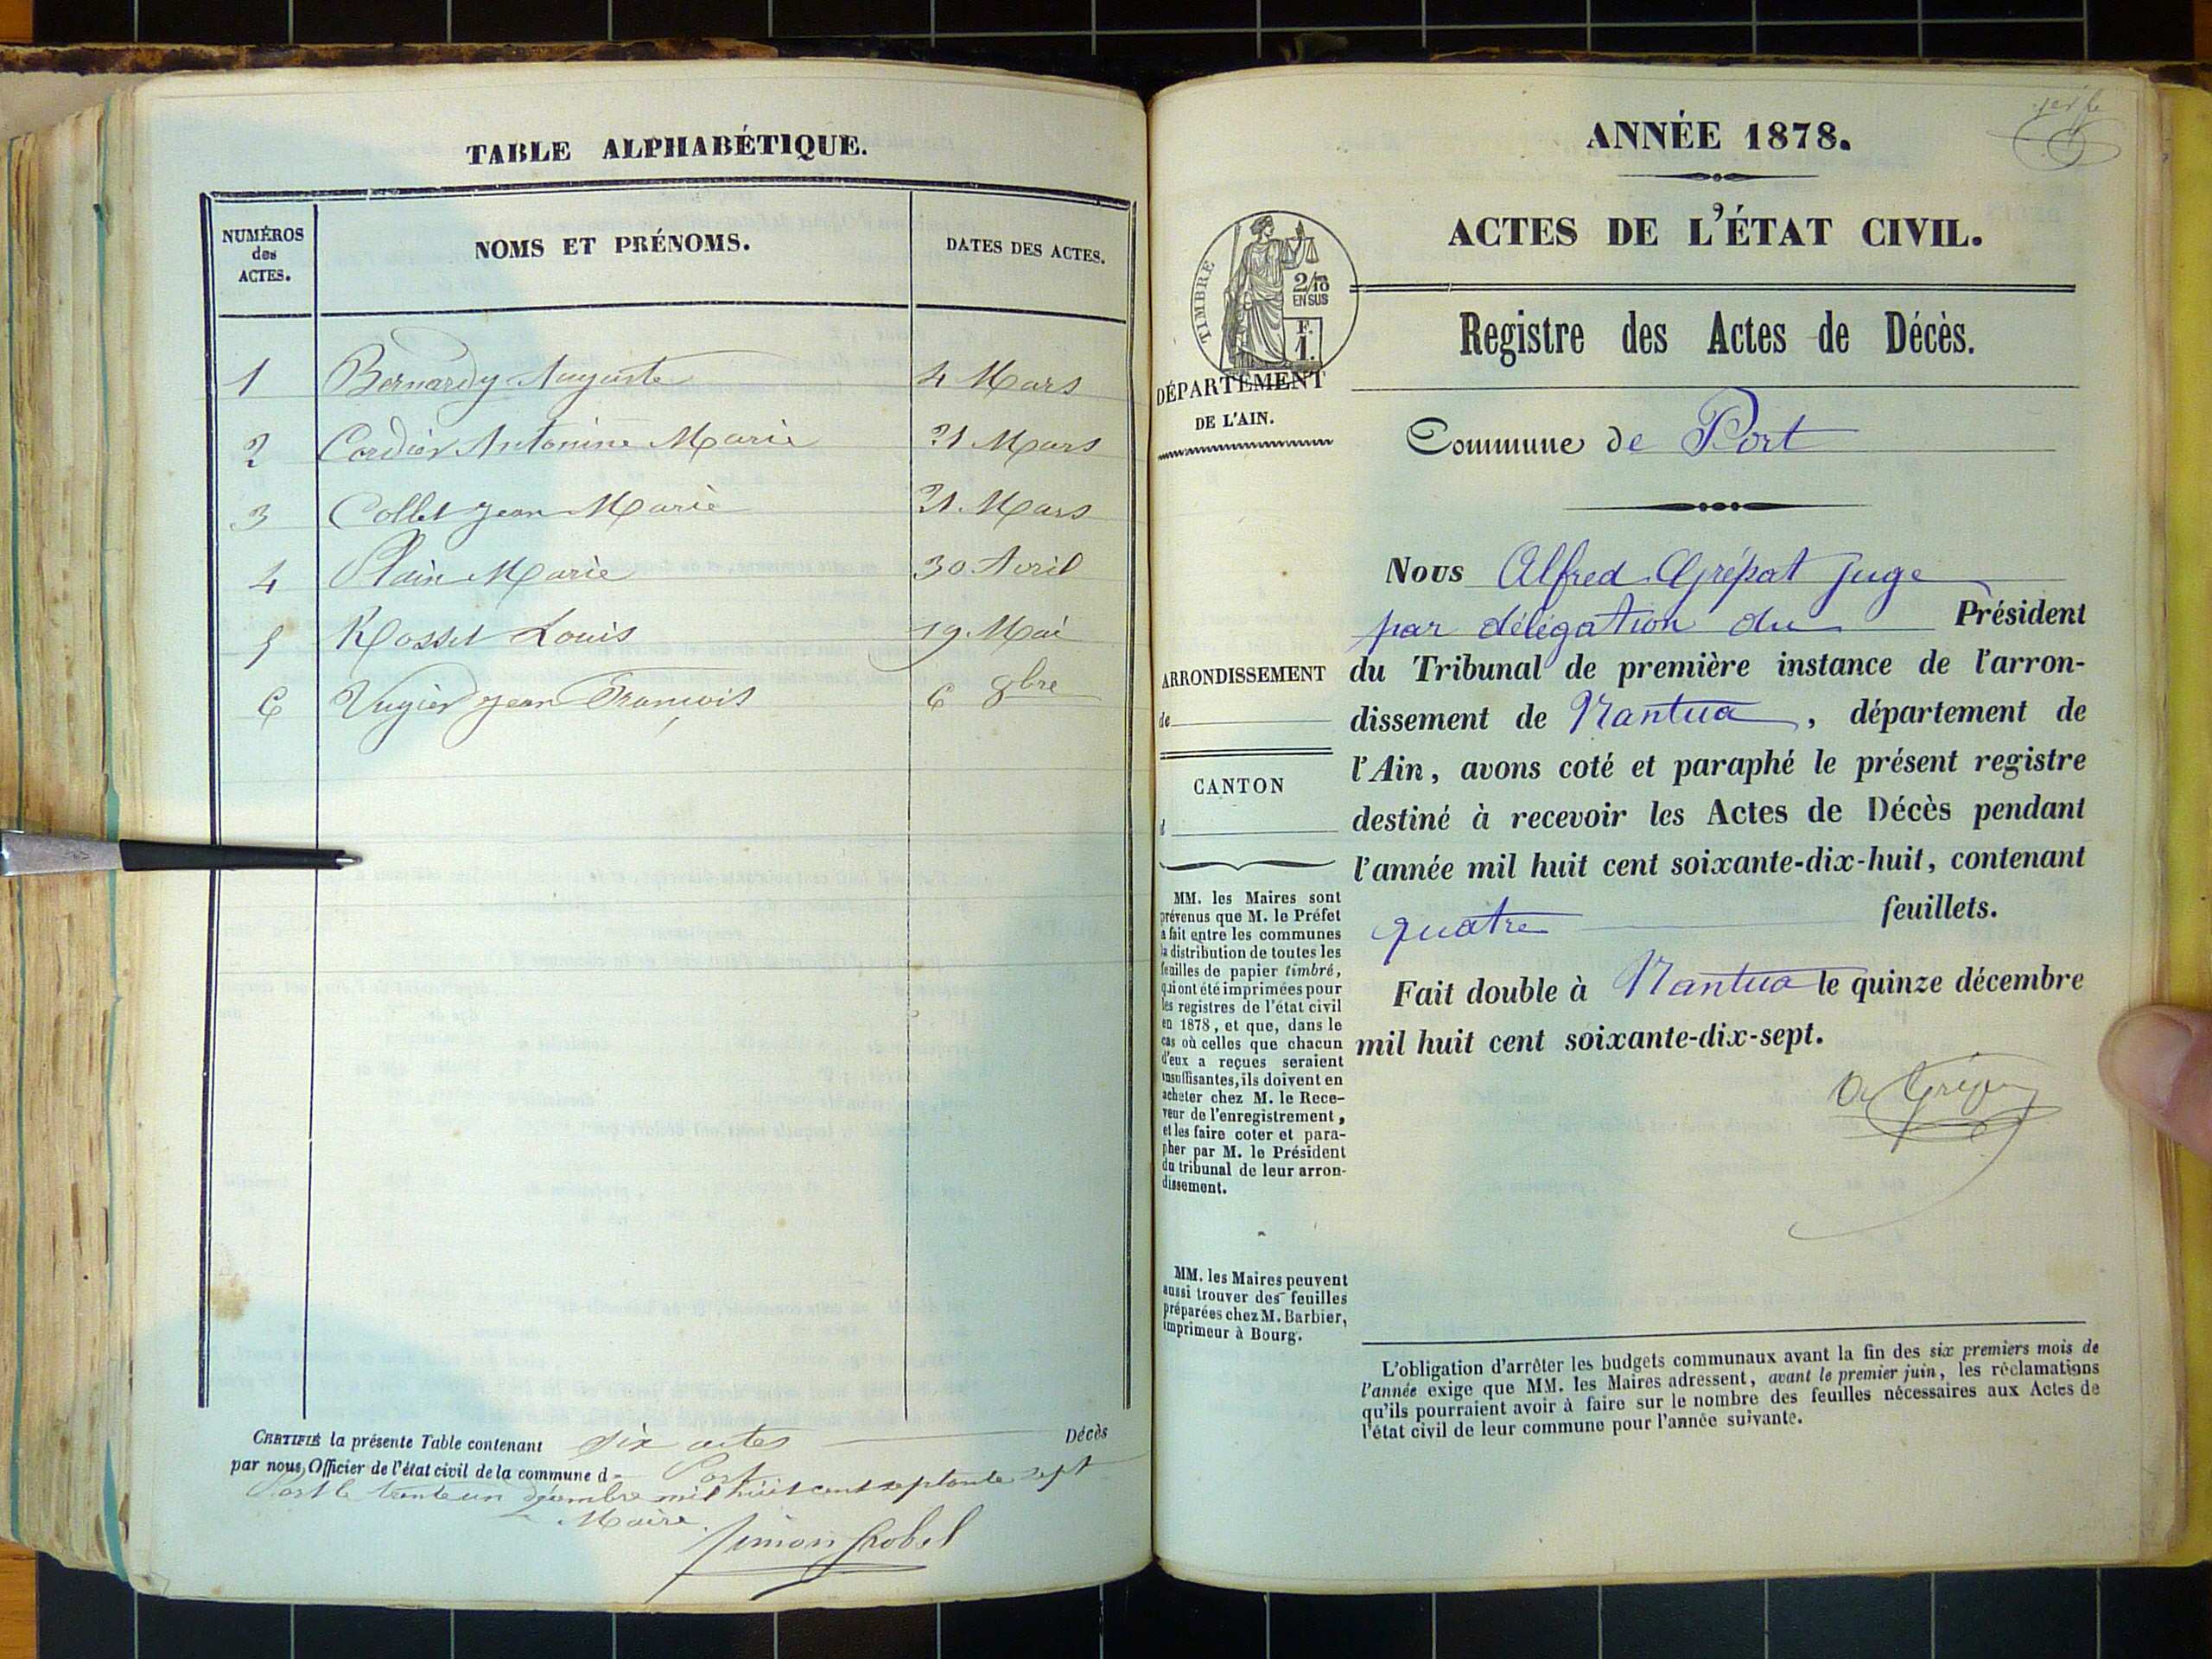 TABLE ALPHABÉTIQUE.
NUMÉROS
des
ACTES.
NOMS ET PRÉNOMS.
DATES DES ACTES.
1 Bernardy Auguste 4 Mars
2 Cordier Antonine Marie 21 Mars
3 Collet Jean Marie 21 Mars
4 Plain Marie 30 Avril
5 Rosset Louis 19 Mai
6 Vugier Jean François 6 8bre
CERTIFIÉ la présente Table contenant six actes Décès
par nous, Officier de l'état civil de la commune d Port
Port le trente un décembre mil huit cent septante sept
Maire
Simon
ANNÉE 1878.
ACTES DE L'ÉTAT CIVIL.
TIMBRE
2/10
EN SUS
F.
1.
Registre des Actes de Décès.
DÉPARTEMENT
DE L'AIN.
Commune de Port
Nous Alfred Grépat Juge
par délégation du Président
du Tribunal de première instance de l'arron-
dissement de Nantua, département de
l'Ain, avons coté et paraphé le présent registre
destiné à recevoir les Actes de Décès pendant
l'année mil huit cent soixante-dix-huit, contenant
quatre feuillets.
Fait double à Nantua le quinze décembre
mil huit cent soixante-dix-sept.
ARRONDISSEMENT
de
CANTON
d
MM. les Maires sont
prévenus que M. le Préfet
a fait entre les communes
la distribution de toutes les
feuilles de papier timbré,
qui ont été imprimées pour
les registres de l'état civil
en 1878, et que, dans le
cas où celles que chacun
d'eux a reçues seraient
insuffisantes, ils doivent en
acheter chez M. le Rece-
veur de l'enregistrement,
et les faire coter et para-
pher par M. le Président
du tribunal de leur arron-
dissement.
MM. les Maires peuvent
aussi trouver des feuilles
préparées chez M. Barbier,
imprimeur à Bourg.
L'obligation d'arrêter les budgets communaux avant la fin des six premiers mois de
l'année exige que MM. les Maires adressent, avant le premier juin, les réclamations
qu'ils pourraient avoir à faire sur le nombre des feuilles nécessaires aux Actes de
l'état civil de leur commune pour l'année suivante.